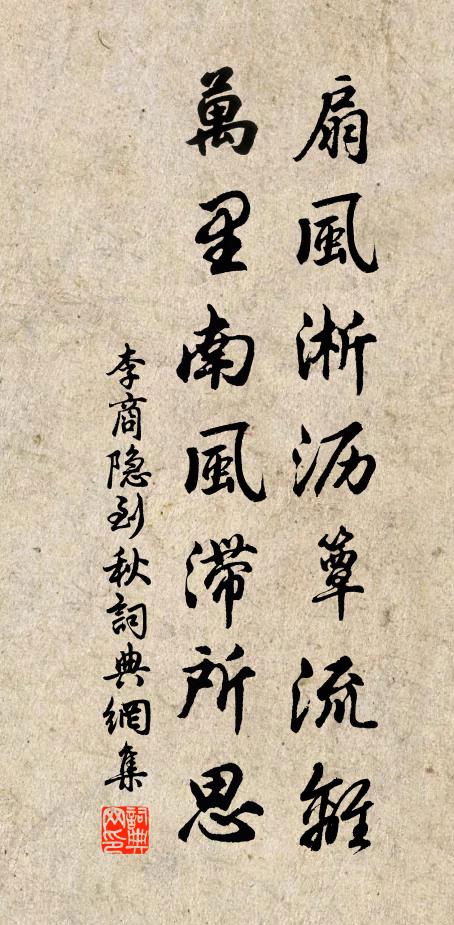 扇風淅沥簟流離
萬里南風滯所思
李商隐到秋詞典網集
詞典網印